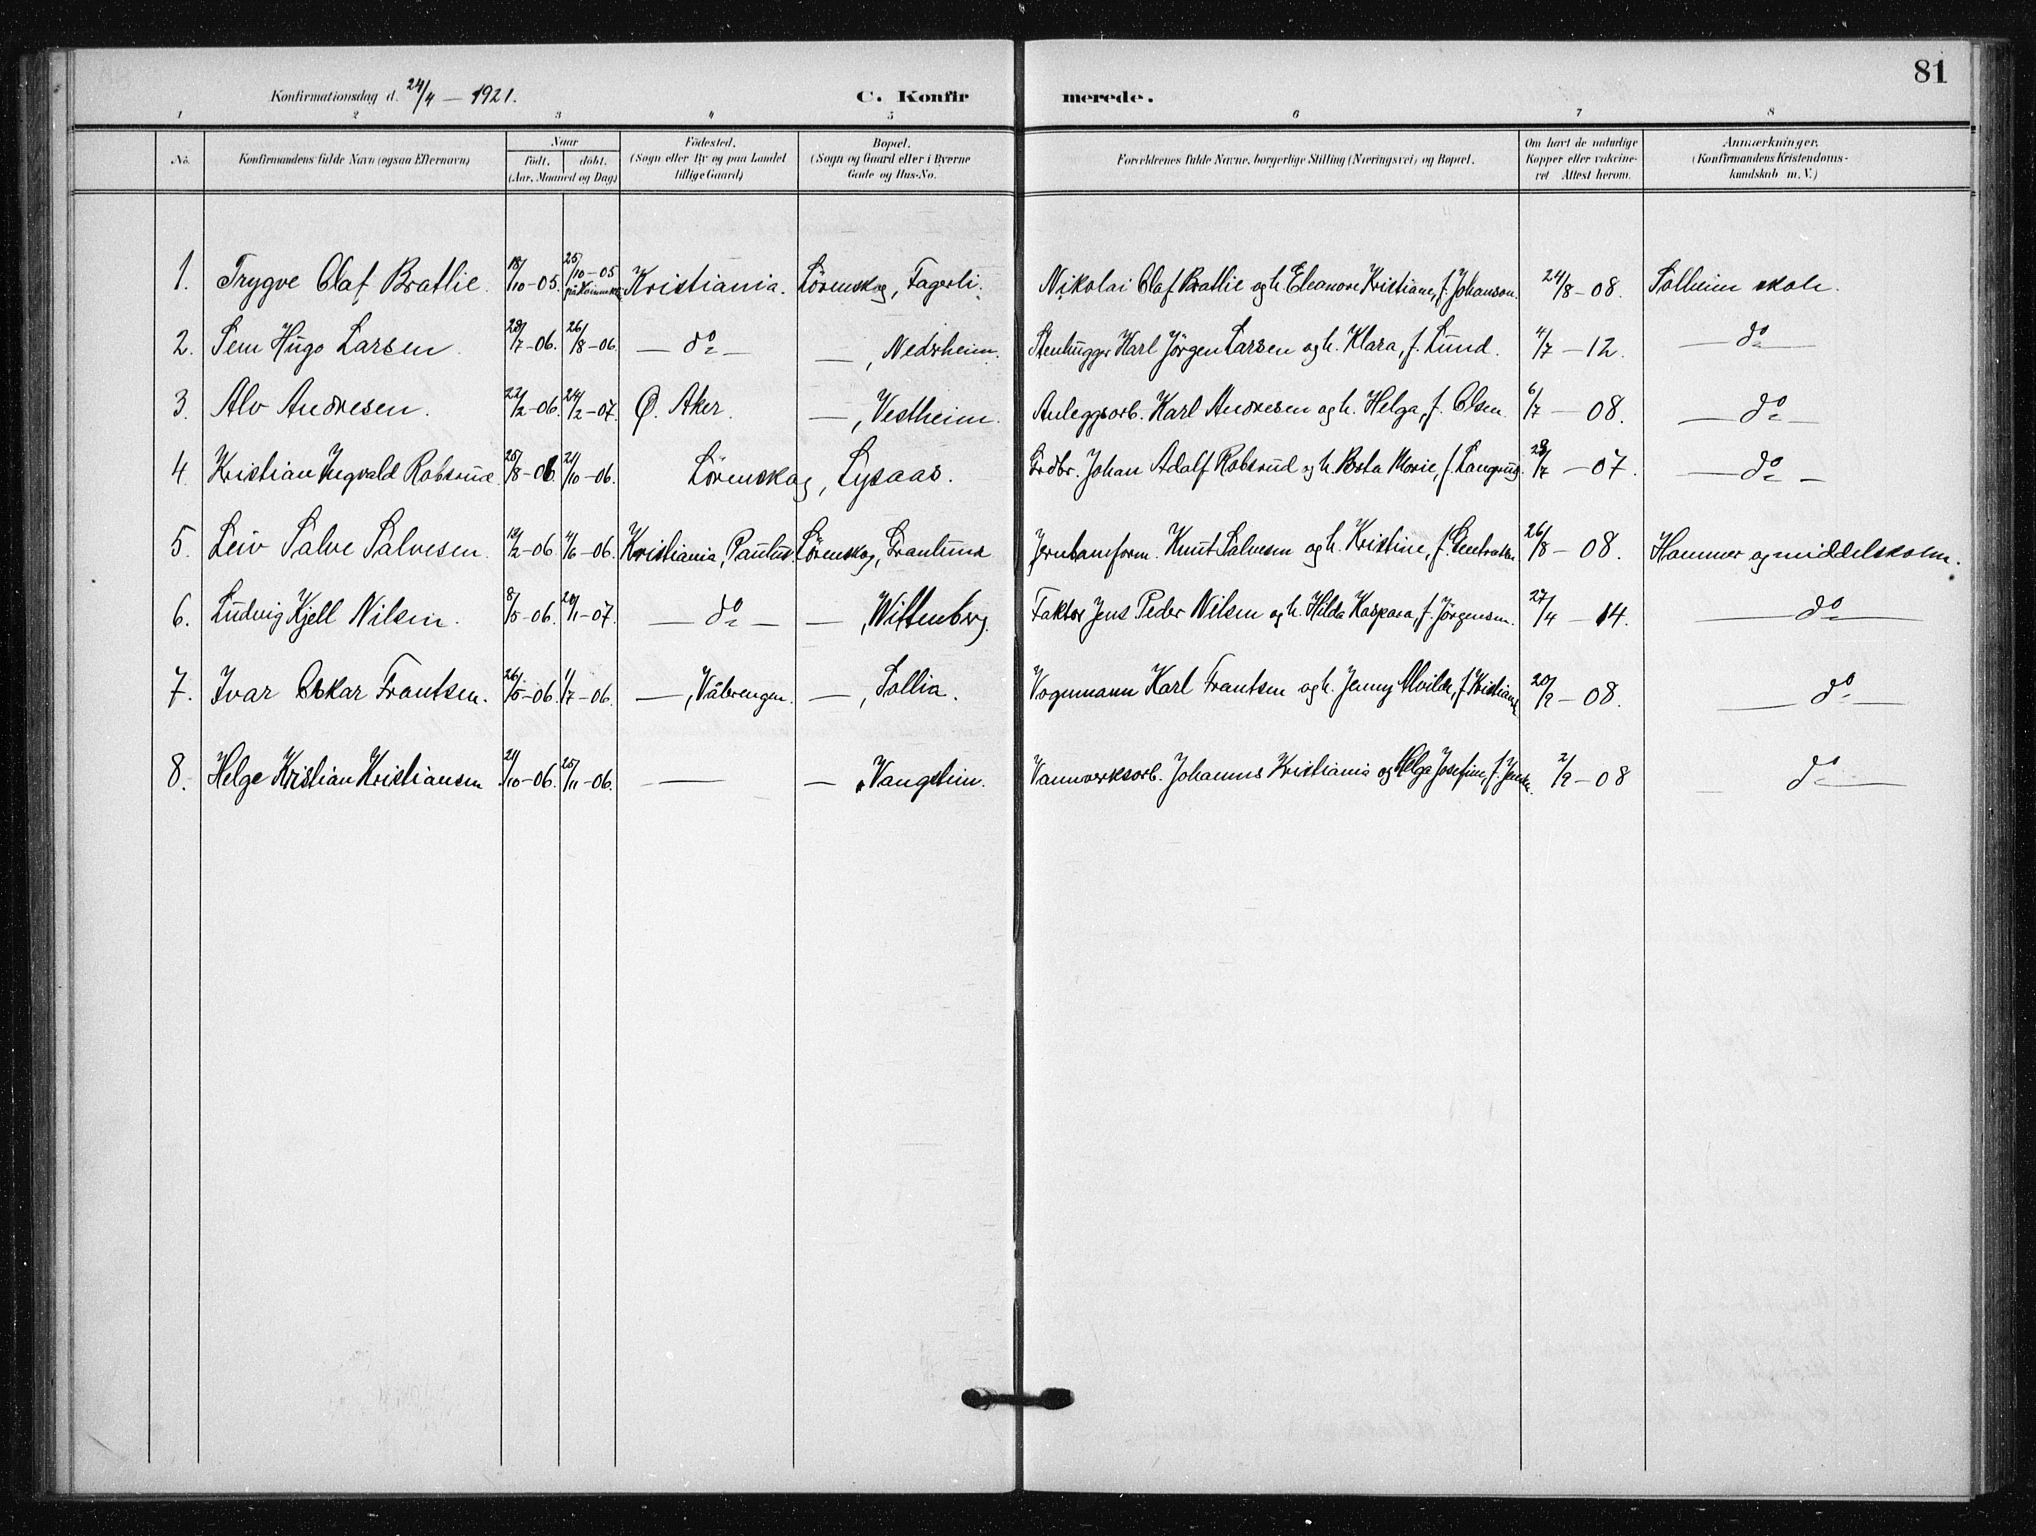 81
Konfirmationsdag d. 24/4 – 1921. C. Konfirmerede.
1 2 3 4 5 6 7 8
No. Konfirmandens fulde Navn (ogsaa Efternavn) Naar født. døbt. (Aar, Maaned og Dag) Fødested. (Sogn eller By og paa Landet tillige Gaard) Bopæl. (Sogn og Gaard eller i Byerne Gade og Hus-No. Forældrenes fulde Navne, borgerlige Stilling (Næringsvei) og Bopæl. Om havt de naturlige Kopper eller vakcineret Attest herom. Anmærkninger. (Konfirmandens Kristendomskundskab m. V.)
1. Trygve Olaf Bratlie. 18/10–05. 25/10–05 Kristiania. Lörenskog, Fagerli. Nikolai Olaf Bratlie og h. Eleanore Kristiane, f. Johanson. 24/8–08. Solheim skole.
2. Sem Hugo Larsen. 28/7–06. 26/8–06. — do — —, Nedrheim. Stenhugger Karl Jörgen Larsen og h. Klara, f. Lund. 4/7–12. — do —
3. Alv Andresen. 22/2–06. 24/2–07. Ø. Aker. —, Vestheim. Anleggsarb. Karl Andresen og h. Helga, f. Olsen. 6/7–08. — do —
4. Kristian Ingvald Robsrud 25/8–06. 21/10–06. Lörenskog, Lysaas. Grdbr. Johan Adolf Robsrud og h. Berta Marie, f. Langrug. 28/7–07. — do —
5. Leiv Salve Salvesen. 18/2–06. 4/6–06. Kristiania, Paulus. Lörenskog, Granlund Jernbaneform. Knut Salvesen og h. Kristine, f. 26/8–08. Hammer og middelskolen.
6. Ludvig Kjell Nilsen. 8/5–06. 20/1–07. — do — —, Wittenberg. Faktor Jens Peder Nilsen og h. Hilda Kaspara, f. Jörgensen. 27/4–14. — do —
7. Ivar Oskar Frantsen. 26/5–06. 1/7–06. —, Vålrengen. —, Sollia. Vognmann Karl Frantsen og h. Jenny Alvilde, f. 20/9–08. — do —
8. Helge Kristian Kristiansen 21/10–06. 25/11–06. — — Vangstein. Vannverksarb. Johannes Kristiania og Helga Josefine, f. 2/9–08 — do —